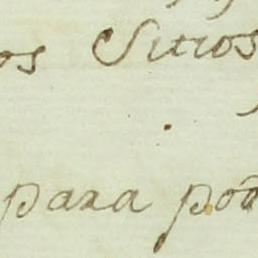 os Sitios
para